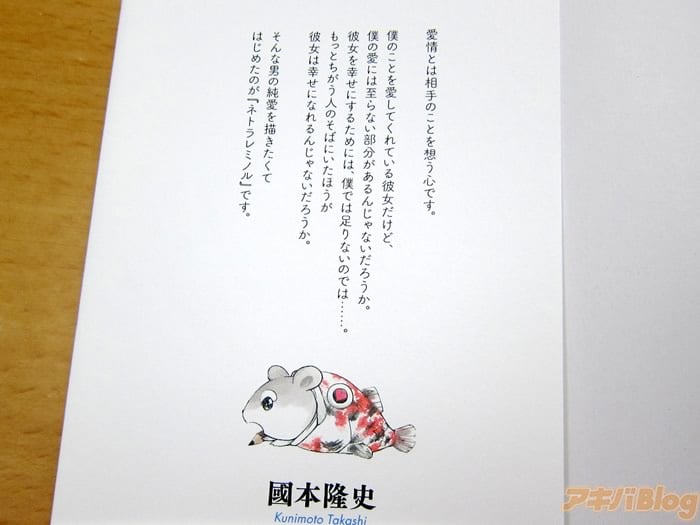 愛情とは相手のことを想う心です。
僕のことを愛してくれている彼女だけど、
僕の愛には至らない部分があるんじゃないだろうか。
彼女を幸せにするためには、僕では足りないのでは……。
もっとちがう人のそばにいたほうが
彼女は幸せになれるんじゃないだろうか。
そんな男の純愛を描きたくて
はじめたのが『ネトラレミノル』です。
國本隆史
Kunimoto Takashi
アキバBlog